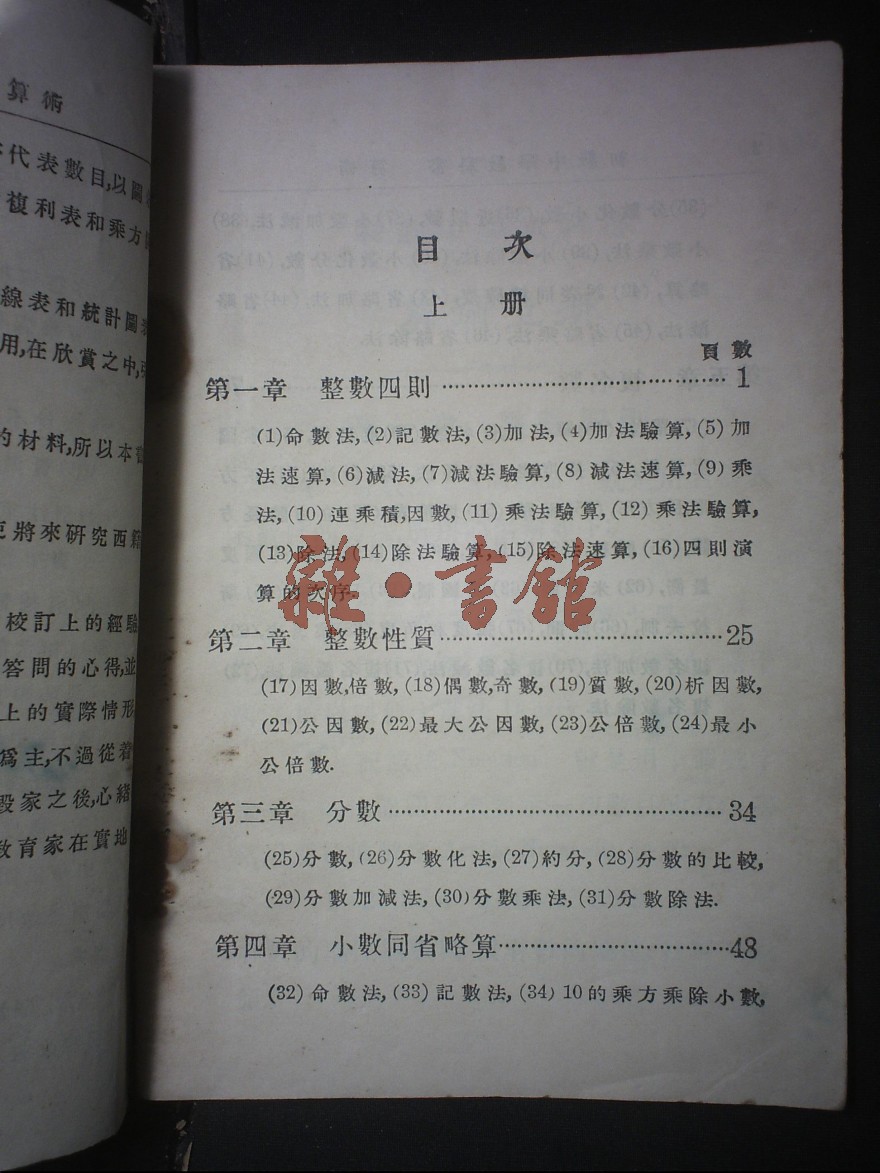 算術
代表數目,以圖
複利表和乘方
線表和統計圖
用,在欣賞之中,
的材料,所以本書
更將來研究西籍
校訂上的經驗
答問的心得,並
上的實際情形
爲主,不過從着
毀家之後,心緒
教育家在實地
目次
上册
頁數
第一章 整數四則……1
(1)命數法,(2)記數法,(3)加法,(4)加法驗算,(5)加
法速算,(6)減法,(7)減法驗算,(8)減法速算,(9)乘
法,(10)連乘積,因數,(11)乘法驗算,(12)乘法驗算,
(13)除法,(14)除法驗算,(15)除法速算,(16)四則演
算的次序.
雜·書館
第二章 整數性質……25
(17)因數,倍數,(18)偶數,奇數,(19)質數,(20)析因數,
(21)公因數,(22)最大公因數,(23)公倍數,(24)最小
公倍數.
第三章 分數……34
(25)分數,(26)分數化法,(27)約分,(28)分數的比較,
(29)分數加減法,(30)分數乘法,(31)分數除法.
第四章 小數同省略算……48
(32)命數法,(33)記數法,(34)10的乘方乘除小數,